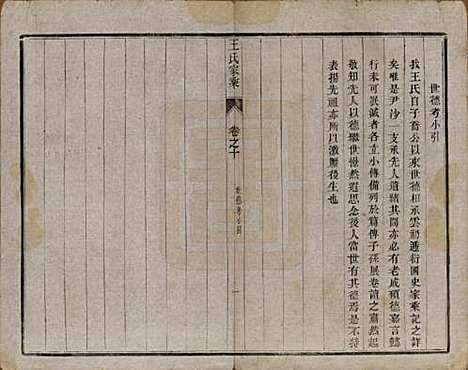 世德考小引
我王氏自子喬公以來世承雲礽遞衍國史家乘記之詳
矣唯是尹沙一支承先人遺緒其間亦必有老成碩德嘉言懿
行未可泯滅者各立小傳備列於篇俾子孫展卷讀之肅然起
敬知先人以德繼世愀然遐思念後人當世有其德焉是不特
表揚先迪亦所以激厲後生也
王氏家乘
卷之十
世德考小引
一